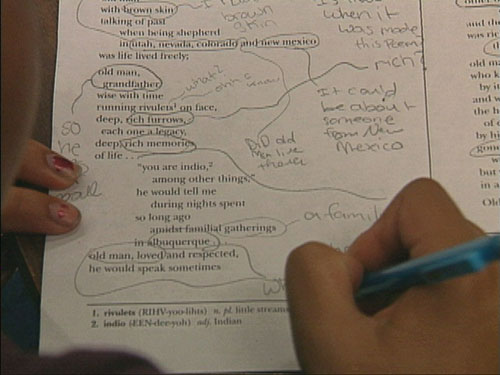 with brown skin
talking of past
when being shepherd
in utah, nevada, colorado and new mexico
was life lived freely;
old man,
grandfather
wise with time
running rivulets¹ on face,
deep, rich furrows,
each one a legacy,
deep, rich memories
of life . . .
"you are indio,²
among other things,"
he would tell me
during nights spent
so long ago
amidst familial gatherings
in albuquerque.
old man, loved and respected,
he would speak sometimes
1. rivulets (RIHV-yoo-lihts) n. pl. little streams
2. indio (EEN-dee-yoh) adj. Indian
brown
skin
when it
was made
this Poem
rich?
what?
It could
be about
someone
from New
Mexico
DiD old
men live
there
so
he
a famil